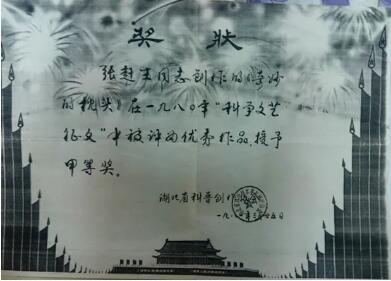 奖状
张赶生同志创作的《会
的枕头》在一九八〇年“科学文艺
征文”中被评为优秀作品,授予
甲等奖。
湖北省科普创作
一九八 年三月廿五日